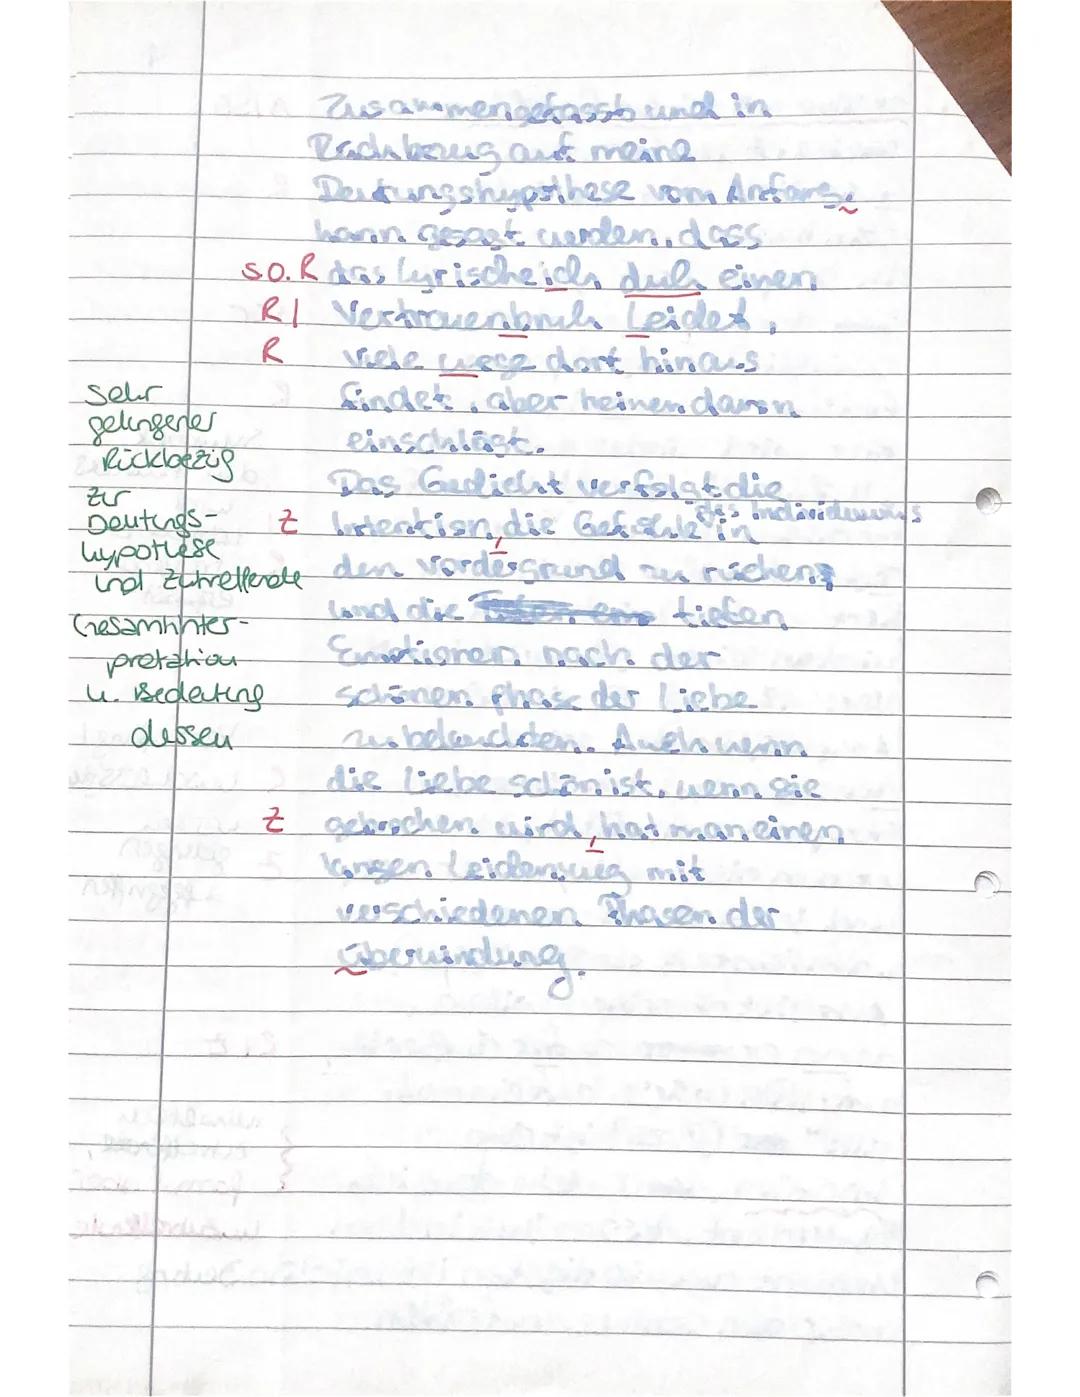 Zusammengefasst und in
Rückbezug auf meine
Deutungshypothese vom Anfang,
kann gesagt werden, dass
s.o. R das lyrische ich, duch einen
R| Vertrauenbruch Leidet,
R viele wege dort hinaus
findet, aber keinen davon
einschlägt.
Das Gedicht verfolgt die
des Individuums
Z Intention, die Gefühle in
den vordergrund zu rücken,
und die tiefen
Emotionen nach der
schönen Phase der Liebe
zu beleuchten. Auch wenn
die Liebe schön ist, wenn sie
Z gebrochen wird, hat man einen
langen Leidensweg mit
verschiedenen Phasen der
überwindung.
Sehr
gelungener
Rückbezug
zur
Deutungs-
hypothese
und zutreffende
Gesamtinter-
pretation
u. Bedeutung
dessen